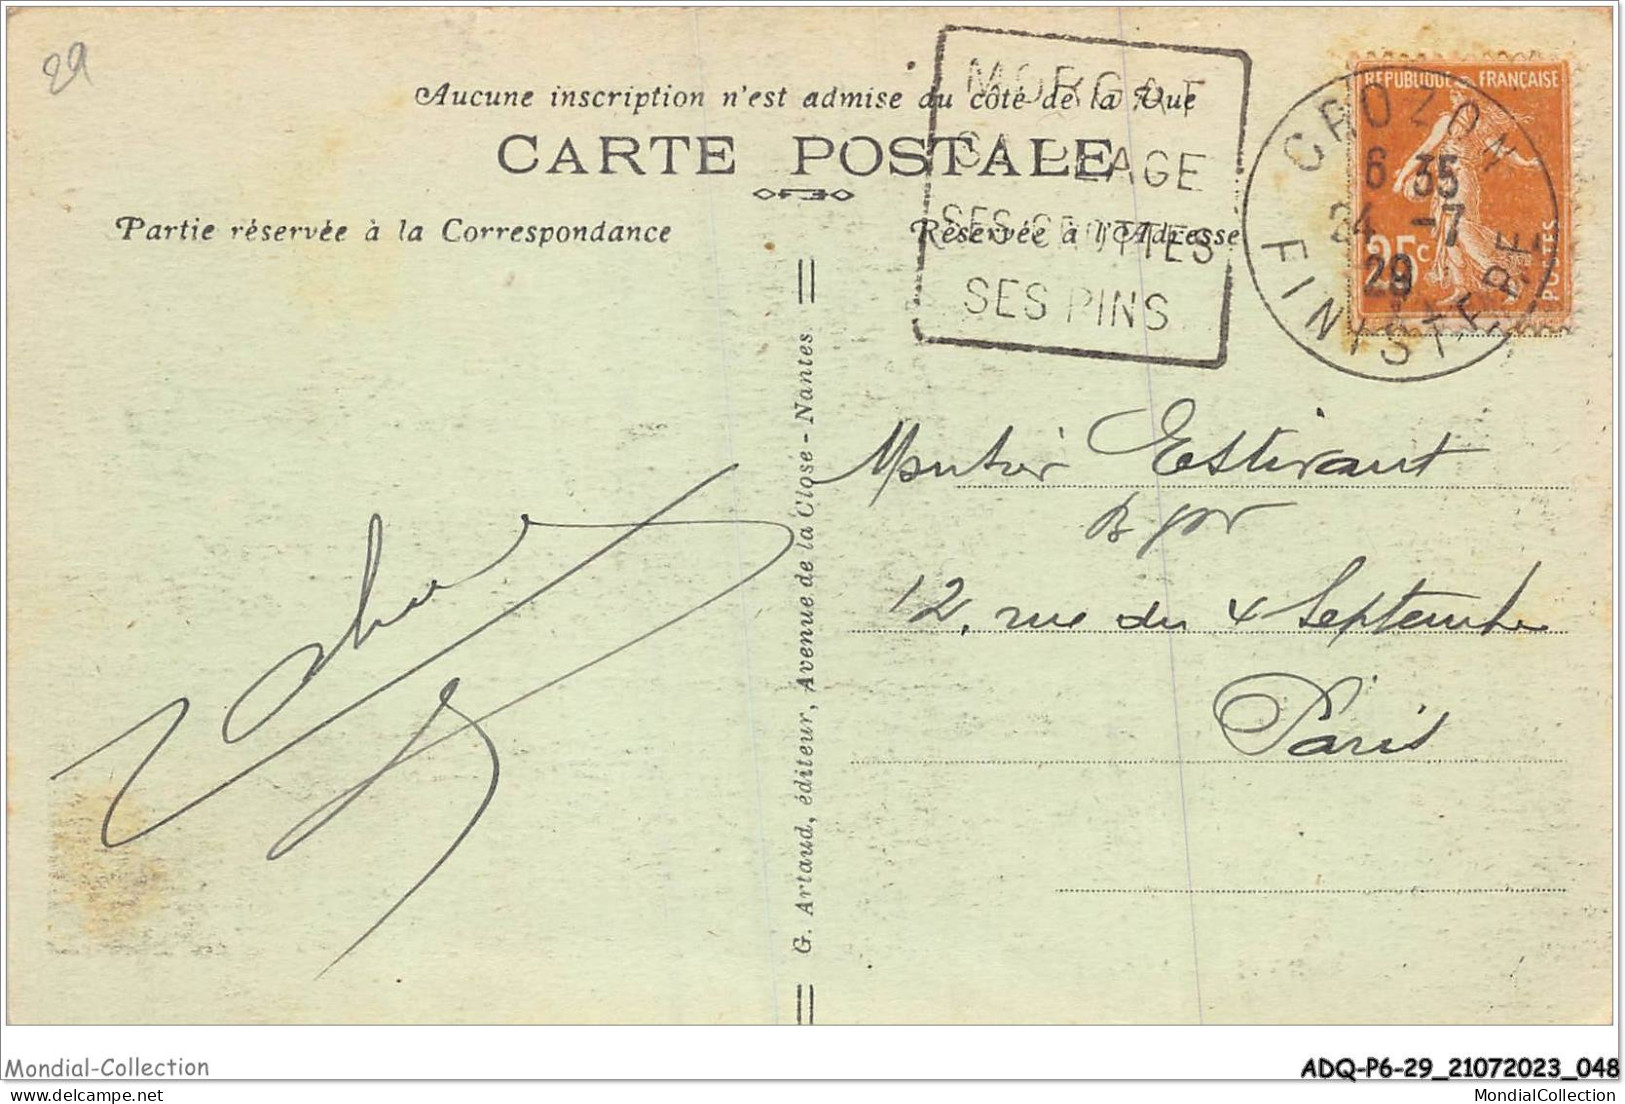 29
Aucune inscription n'est admise du côté de la Vue
CARTE POSTALE
Partie réservée à la Correspondance
Réservée à l'Adresse
MORGAT
SA PLAGE
SES GROTTES
SES PINS
REPUBLIQUE FRANÇAISE
25c
POSTES
CROZON
6 35
24 -7
29
FINISTERE
G. Artaud, éditeur, Avenue de la Close - Nantes
Estivant
12, rue du 4 Septembre
Paris
Mondial-Collection
ADQ-P6-29_21072023_048
MondialCollection
MondialCollection